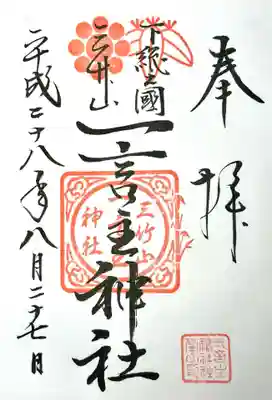 奉拝
下総國
三竹山
一言主神社
三竹山
神社
平成二十八年八月二十七日